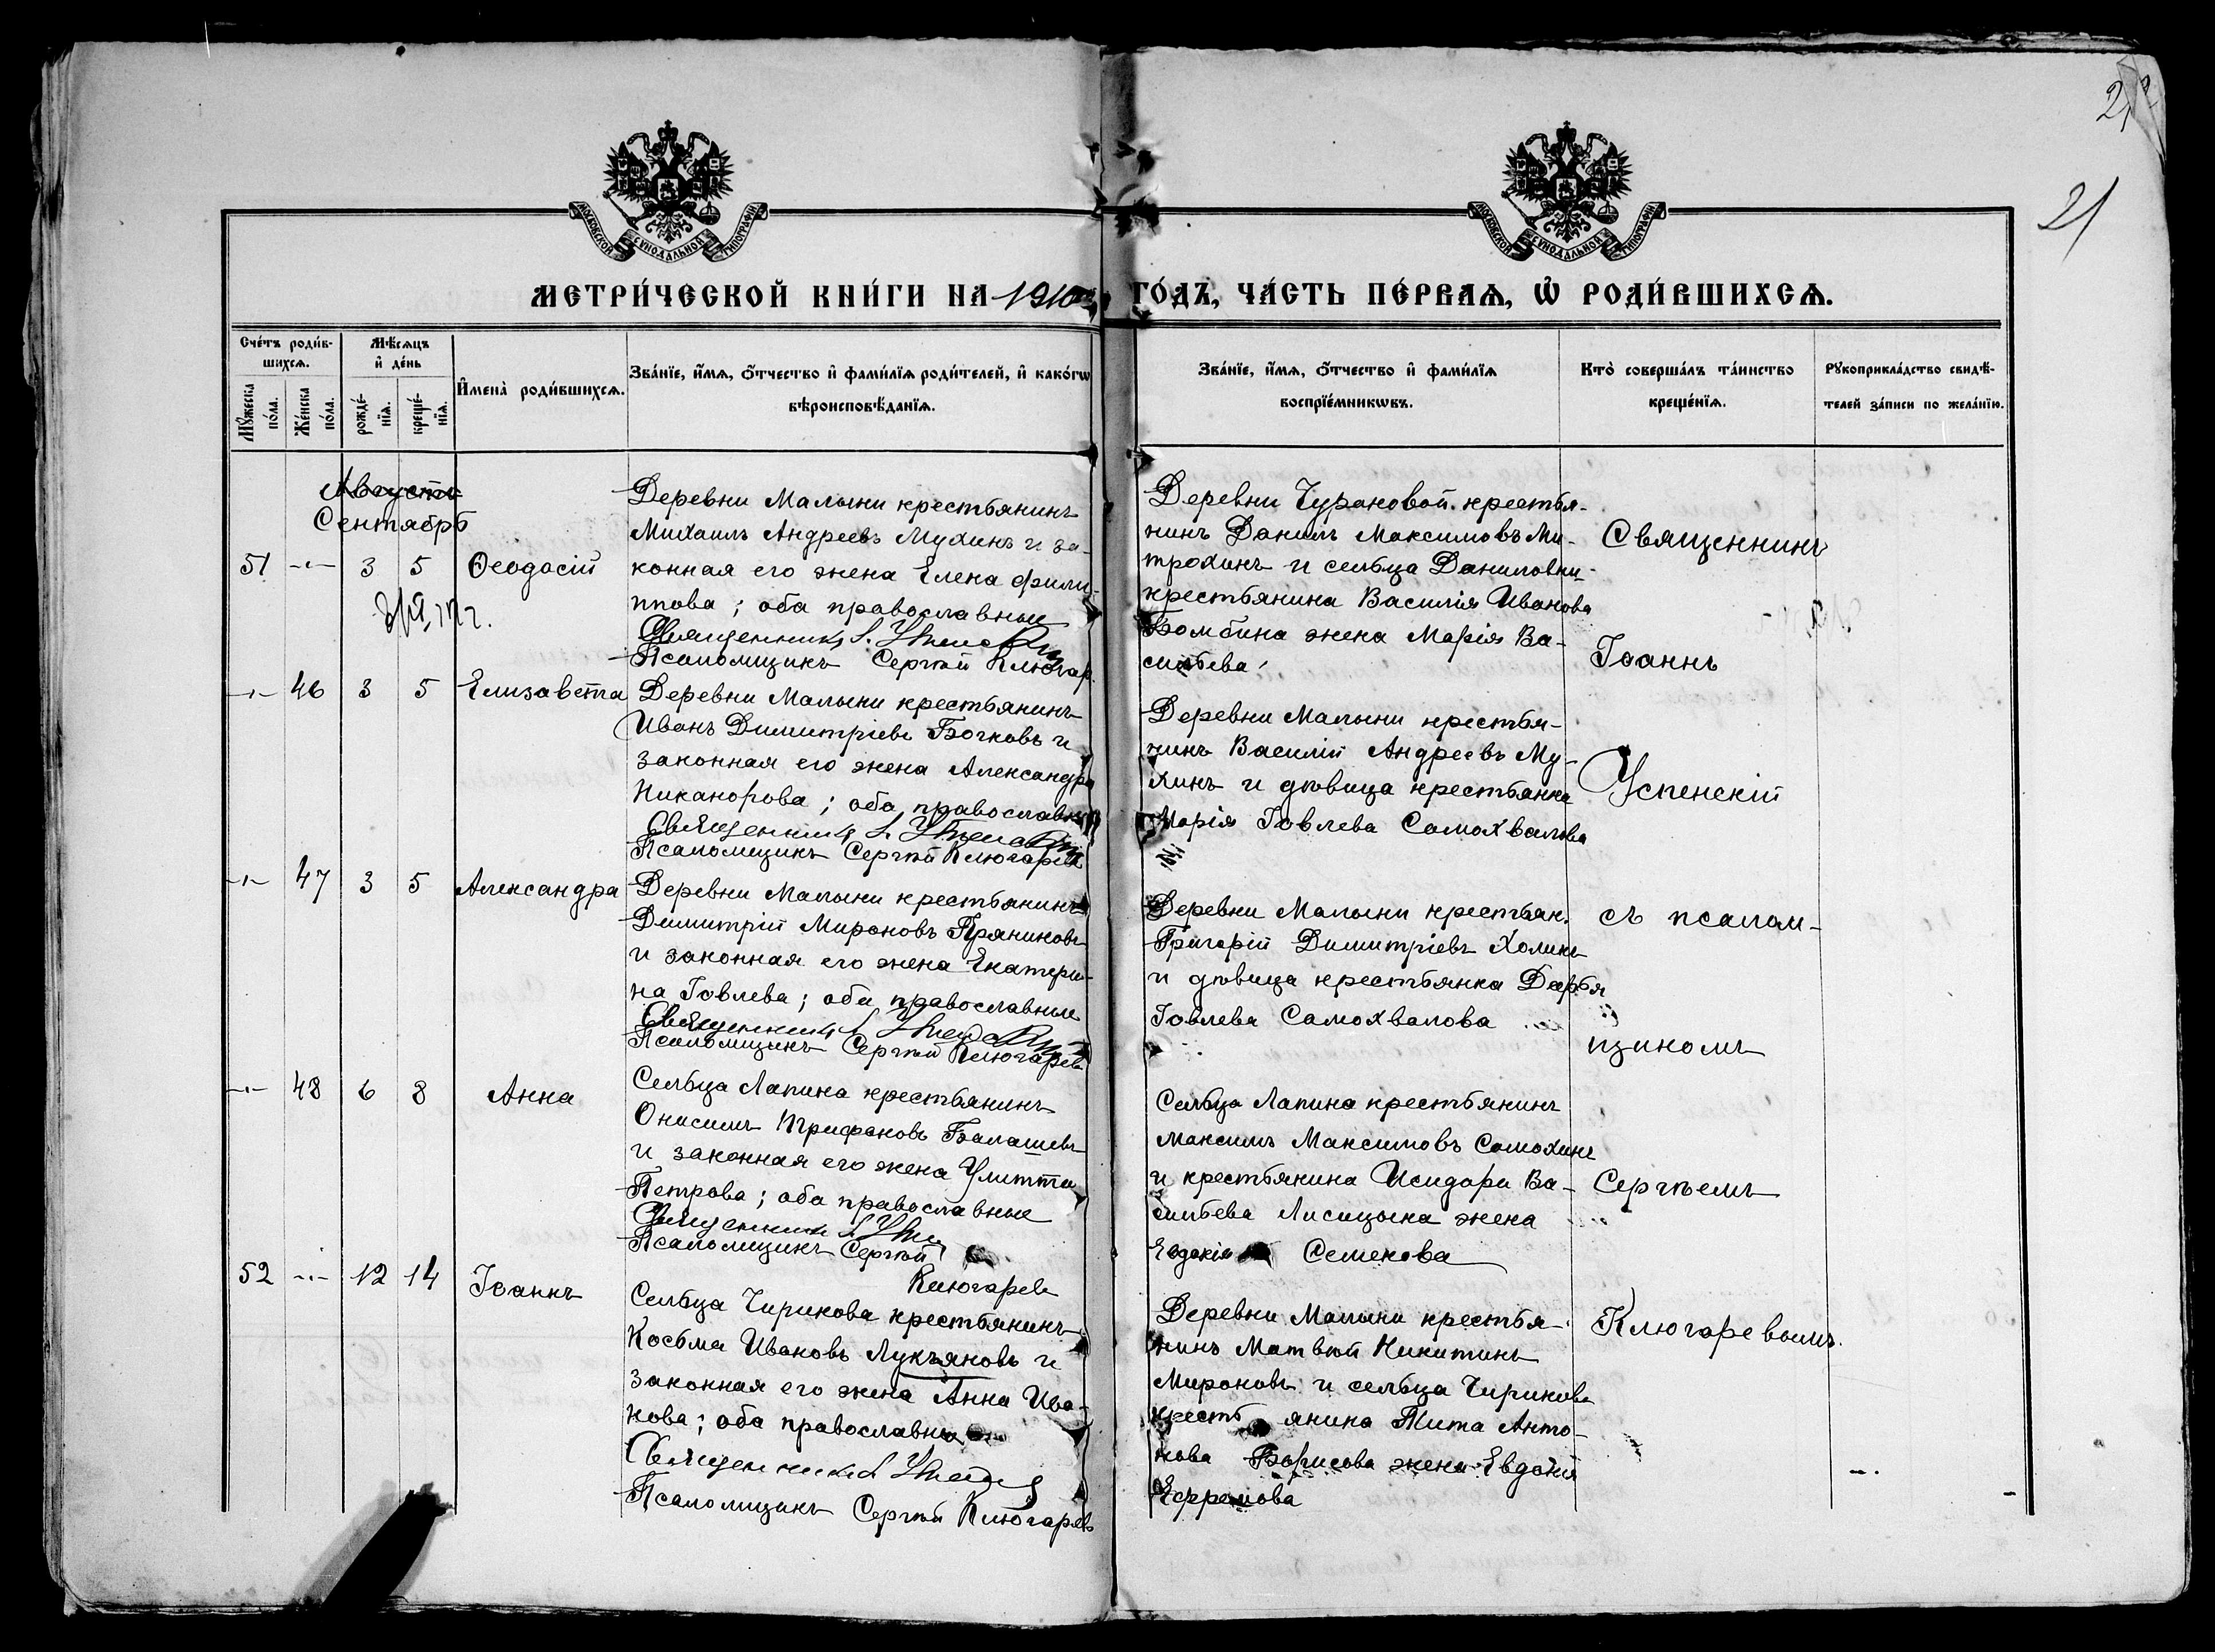 2
21
МОСКОВСКОЙ СѴНОДАЛЬНОЙ ТИПОГРАФІИ
МОСКОВСКОЙ СѴНОДАЛЬНОЙ ТИПОГРАФІИ
МЕТРИ́ЧЕСКОЙ КНИ́ГИ НА 1910 ГО́ДЪ, ЧА́СТЬ ПЕ́РВАѦ, Ѡ҆ РОДИ́ВШИХСѦ.
Сче́тъ роди́в-
шихсѧ.
Мꙋ́жеска
по́ла.
Же́нска
по́ла.
Мѣ́сѧцъ
и҆ де́нь
рожде́-
нїѧ.
креще́-
нїѧ.
И҆мена̀ роди́вшихсѧ.
Зва́нїе, и҆́мѧ, ѻ҆́тчество и҆ фами́лїѧ роди́телей, и҆ како́гѡ
вѣроисповѣ́данїѧ.
Зва́нїе, и҆́мѧ, ѻ҆́тчество и҆ фами́лїѧ
воспрїе́мникѡвъ.
Кто̀ соверша́лъ та́инство
креще́нїѧ.
Рꙋкоприкла́дство свидѣ́-
телей за́писи по жела́нїю.
Августъ
Сентябрь
51 -"- 3 5 Ѳеодосій
Деревни Малыни крестьянинъ
Михаилъ Андреевъ Мухинъ и за-
конная его жена Елена Фили-
ппова; оба православные
Священникъ І. Успенскій
Псаломщикъ Сергѣй Ключар
Деревни Чураковой крестья-
нинъ Данилъ Максимовъ Ми-
трохинъ и сельца Даниловки
крестьянина Василія Иванова
Бомбина жена Марія Ва-
сильева
-"- 46 3 5 Елизавета
Деревни Малыни крестьянинъ
Иванъ Димитріевъ Бочковъ и
законная его жена Александра
Никанорова; оба православн
Священникъ І. Успенскій
Псаломщикъ Сергѣй Ключаревъ
Деревни Малыни крестья-
нинъ Василій Андреевъ Му-
хинъ и дѣвица крестьянка
Марія Іовлева Самохвалова
-"- 47 3 5 Александра
Деревни Малыни крестьянинъ
Димитрій Мироновъ Пряниковъ
и законная его жена Екатери-
на Іовлева; оба православные
Священникъ І. Успенскій
Псаломщикъ Сергѣй Ключаревъ
Деревни Малыни крестьян.
Григорій Димитріевъ Холинъ
и дѣвица крестьянка Дарья
Іовлева Самохвалова
-"- 48 6 8 Анна
Сельца Лапина крестьянинъ
Онисимъ Трифоновъ Балашевъ
и законная его жена Улитта
Петрова; оба православные
Священникъ І. Успе
Псаломщикъ Сергѣй
Ключаревъ
Сельца Лапина крестьянинъ
Максимъ Максимовъ Самохинъ
и крестьянина Исидора Ва-
сильева Лисицына жена
Евдокія Семенова
52 -"- 12 14 Іоаннъ
Сельца Чирикова крестьянинъ
Косьма Ивановъ Лукъяновъ и
законная его жена Анна Ива-
нова; оба православны
Священникъ І. Успенскій
Псаломщикъ Сергѣй Ключаревъ
Деревни Малыни крестья-
нинъ Матвѣй Никитинъ
Мироновъ и сельца Чирикова
крестьянина Тита Анто-
нова Борисова жена Евдокія
Ефремова
Священникъ
Іоаннъ
Успенскій
съ псалом-
щикомъ
Сергѣемъ
Ключаревымъ.